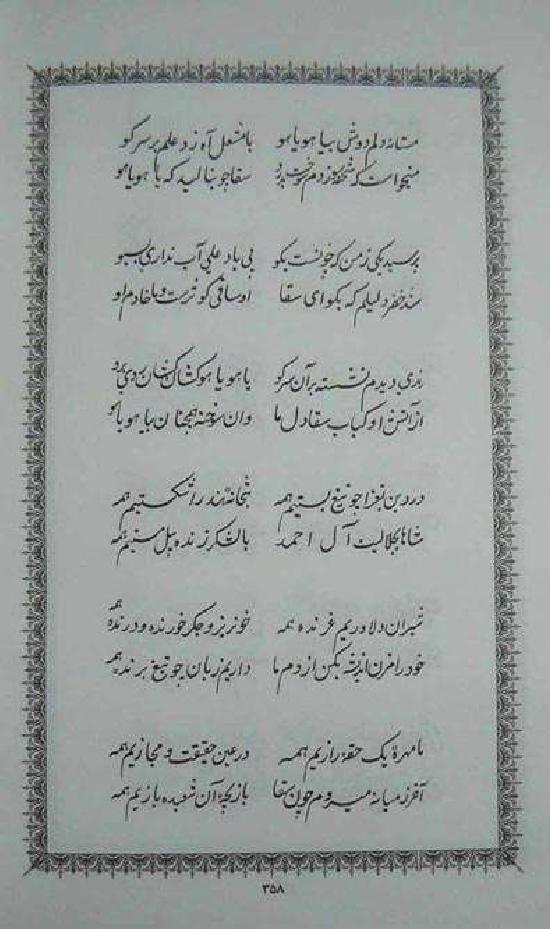 مستانه دلم دوش بیا هو یاهو با مشعل آه زد علم بر سر کو
میخواست که شعله زدم سقا چو بنالید که یا هو یا هو
پرسید یکی ز من که چونست بگو بی یاد علی آب نداری به سبو
شد خضر دلیلم که بگو ای سقا او ساقی کوثرست و ما خادم او
دیدم نشسته بر آن سر کو با هو یا هو کشاکش
از آتش او کباب سقا دل ما وان سوخته همچنان بیا هو یا هو
در دین چو تیغ بستیم همه بتخانه هند را شکستیم همه
شاها بجلالت آل احمد با لشکر زنده پیل مستیم همه
شیران دلاوریم غرنده همه خونریز و جگر خورنده و درنده همه
خود را مزن اندیشه بکن از دم ما داریم زبان چو تیغ برنده همه
ما مهره یک حقه رازیم همه در عین حقیقت و مجازیم همه
آخر ز میانه میرویم چون سقا بازیچه آن شعبده بازیم همه
۳۵۸